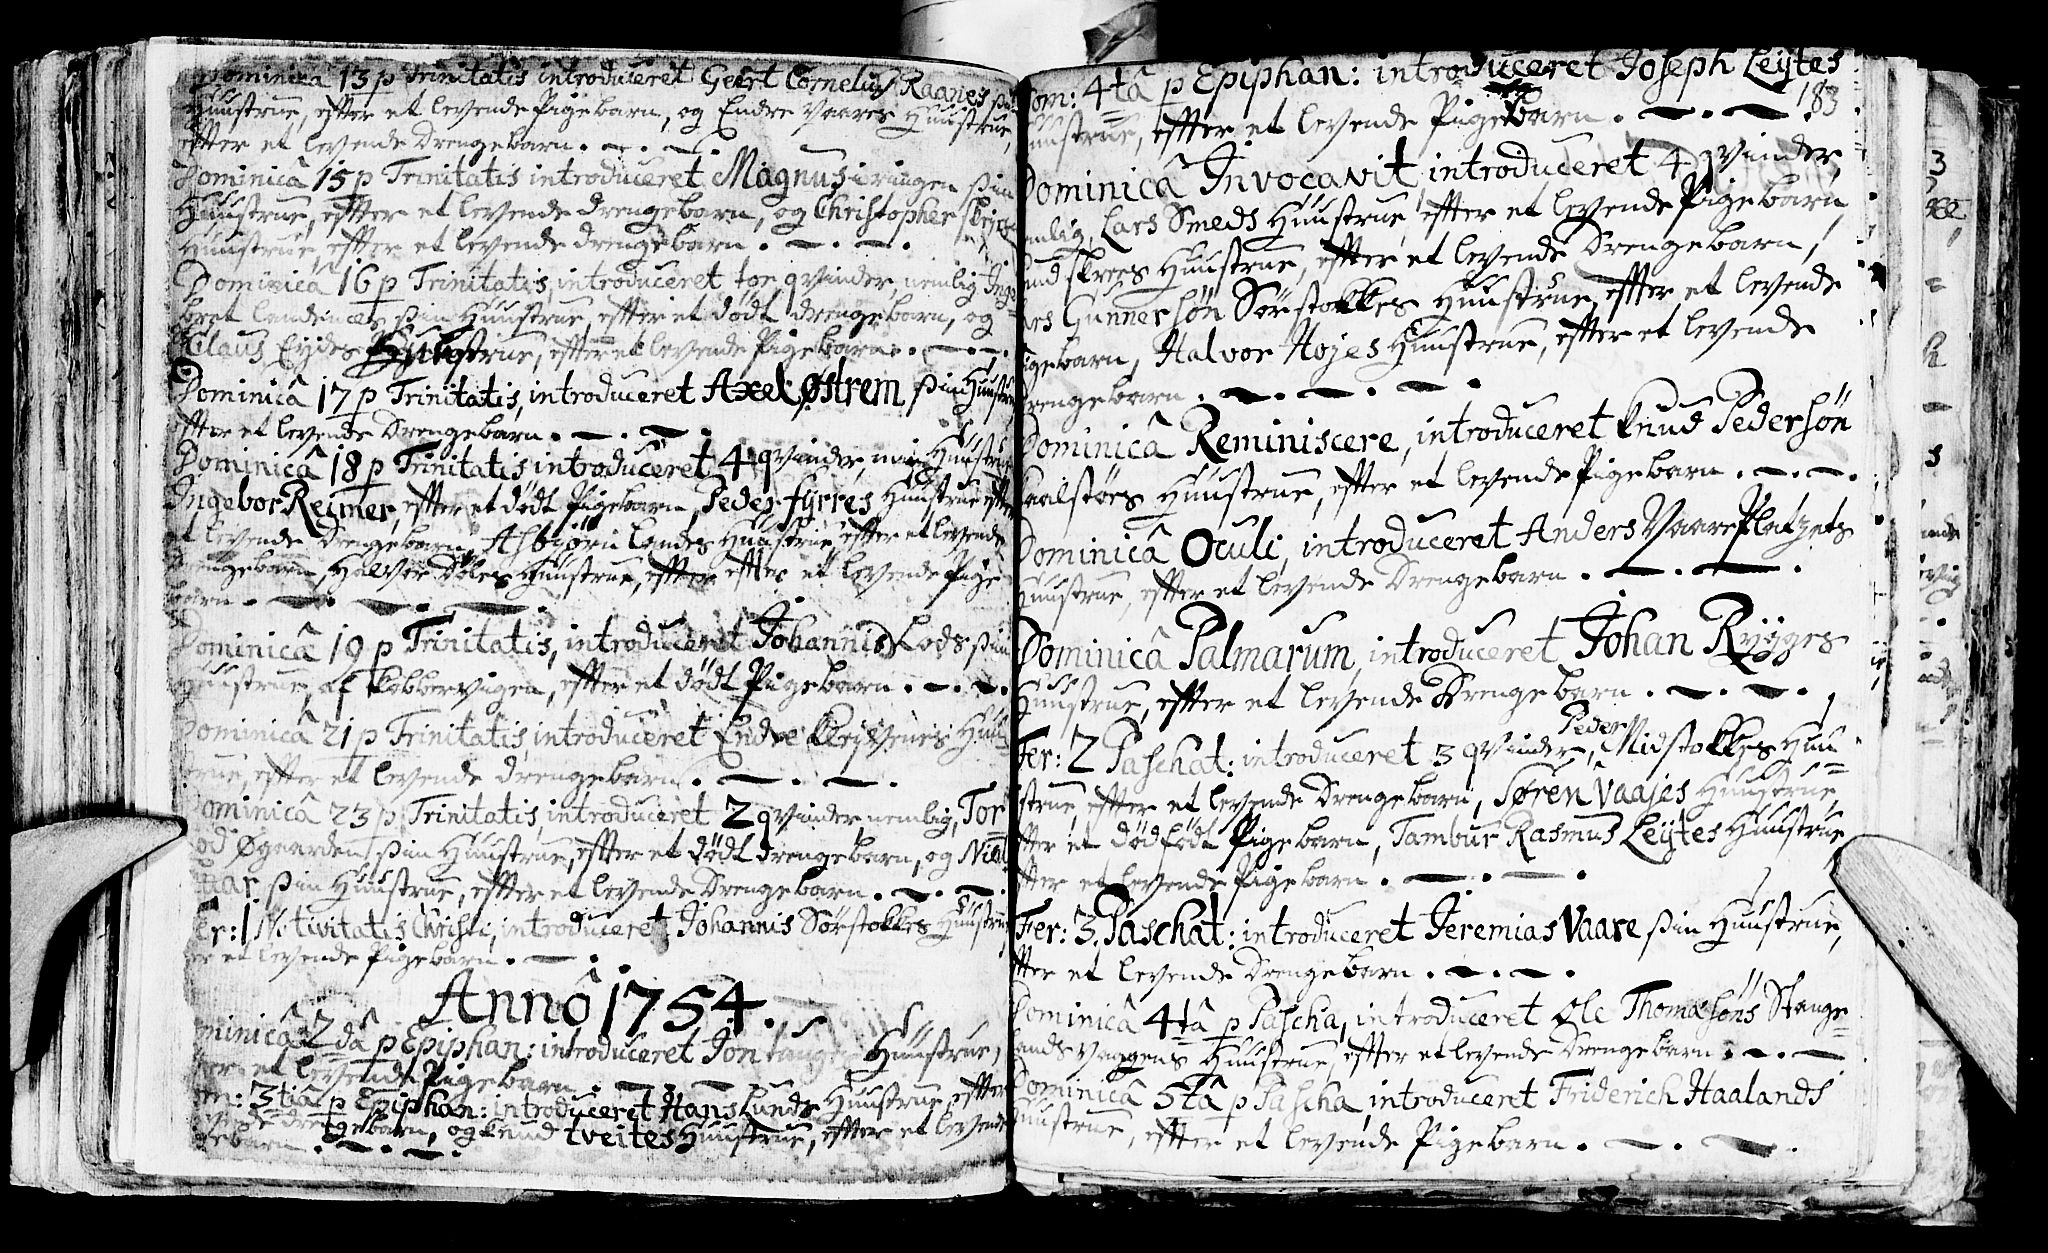 Dominica 13 p Trinitatis introduceret Geert Cornelius Raanes sin
Huustrue, efter et levende Pigebarn, og Endre Vaares Huustrue,
efter et levende Drengebarn.
Dominicâ 15 p Trinitatis introduceret Magnus i ringen sin
Huustrue, efter et levende drengebarn, og Christopher
Huustrue, efter et levende drengebarn.
Dominicâ 16 p Trinitatis, introduceret toe qvinder, nemlig Inge=
bret sin Huustrue, efter et dødt drengebarn, og
Claus Eydes Huustrue, efter et levende Pigebarn.
Dominicâ 17 p Trinitatis, introduceret Axel Østrem sin Huustrue
efter et levende Drengebarn.
Dominicâ 18 p Trinitatis introduceret 4 qvinder, min Huustrue
Ingebor Reimer, efter et dødt Pigebarn, Peder fyrres Huustrue efter
et levende Drengebarn, Asbiørn Landes Huustrue efter et levende
Drengebarn, Halvor Døles Huustrue, efter efter et levende Pige
barn.
Dominicâ 19 p Trinitatis, introduceret Johannis Lods sin
Huustrue, af Kobbervigen, efter et dødt Pigebarn.
Dominicâ 21 p Trinitatis introduceret Endre Huu=
strue, efter et levende drengebarn.
Dominicâ 23 p Trinitatis introduceret 2 qvinder nemlig, Tor
od Øgaarden sin Huustrue, efter et dødt drengebarn, og Niels
sin Huustrue, efter et levende Drengebarn.
Fer: 1 Nativitatis Christi, introduceret Johannis Sørstokkes Huustrue
er et levende Pigebarn.
Annô 1754.
minicâ 2dâ p Epiphan: introduceret Jon Huustrue,
et levende Pigebarn.
m: 3tiâ p Epiphan: introduceret Hans Lunds Huustrue, efter
drengebarn, og Knud tveites Huustrue, efter et levende
gebarn.
Dom: 4tâ p Epiphan: introduceret Joseph Leytes
183
Huustrue, efter et levende Pigebarn.
Dominicâ Invocavit introduceret 4 qvinder
nemlig, Lars Smeds Huustrue efter et levende Pigebarn
Knud Skrees Huustrue, efter et levende Drengebarn,
Lars Gunnersøn Sørstokkes Huustrue, efter et levende
Pigebarn, Halvor Højes Huustrue, efter et levende
Drengebarn.
Dominicâ Reminiscere, introduceret Knud Pedersøn
Huustrue, efter et levende Pigebarn.
Dominicâ Oculi, introduceret Anders Vaare Platzets
Huustrue, efter et levende Drengebarn.
Dominicâ Palmarum, introduceret Johan Rygges
Huustrue, efter et levende Drengebarn.
Peder
Fer: 2 Paschat: introduceret 3 qvinder, Midstokkes Huu=
strue, efter et levende Drengebarn, Søren Vaajes Huustrue
efter et dødfødt Pigebarn, Tambur Rasmus Leytes Huustrue
efter et levende Pigebarn.
Fer: 3. Paschat: introduceret Jeremias Vaare sin Huustrue,
efter et levende Drengebarn.
Dominicâ 4tâ p Pascha, introduceret Ole Thomæsøns Stange=
lands vaagens Huustrue, efter et levende Drengebarn.
Dominicâ 5tâ p Pascha introduceret Friderich Haalands
Huustrue, efter et levende Pigebarn.